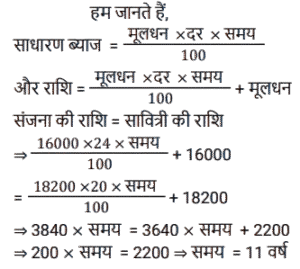 हम जानते हैं,
साधारण ब्याज = मूलधन ×दर × समय / 100
और राशि = मूलधन ×दर × समय / 100 + मूलधन
संजना की राशि = सावित्री की राशि
⇒ 16000 ×24 × समय / 100 + 16000
= 18200 ×20 × समय / 100 + 18200
⇒ 3840 × समय = 3640 × समय + 2200
⇒ 200 × समय = 2200 ⇒ समय = 11 वर्ष